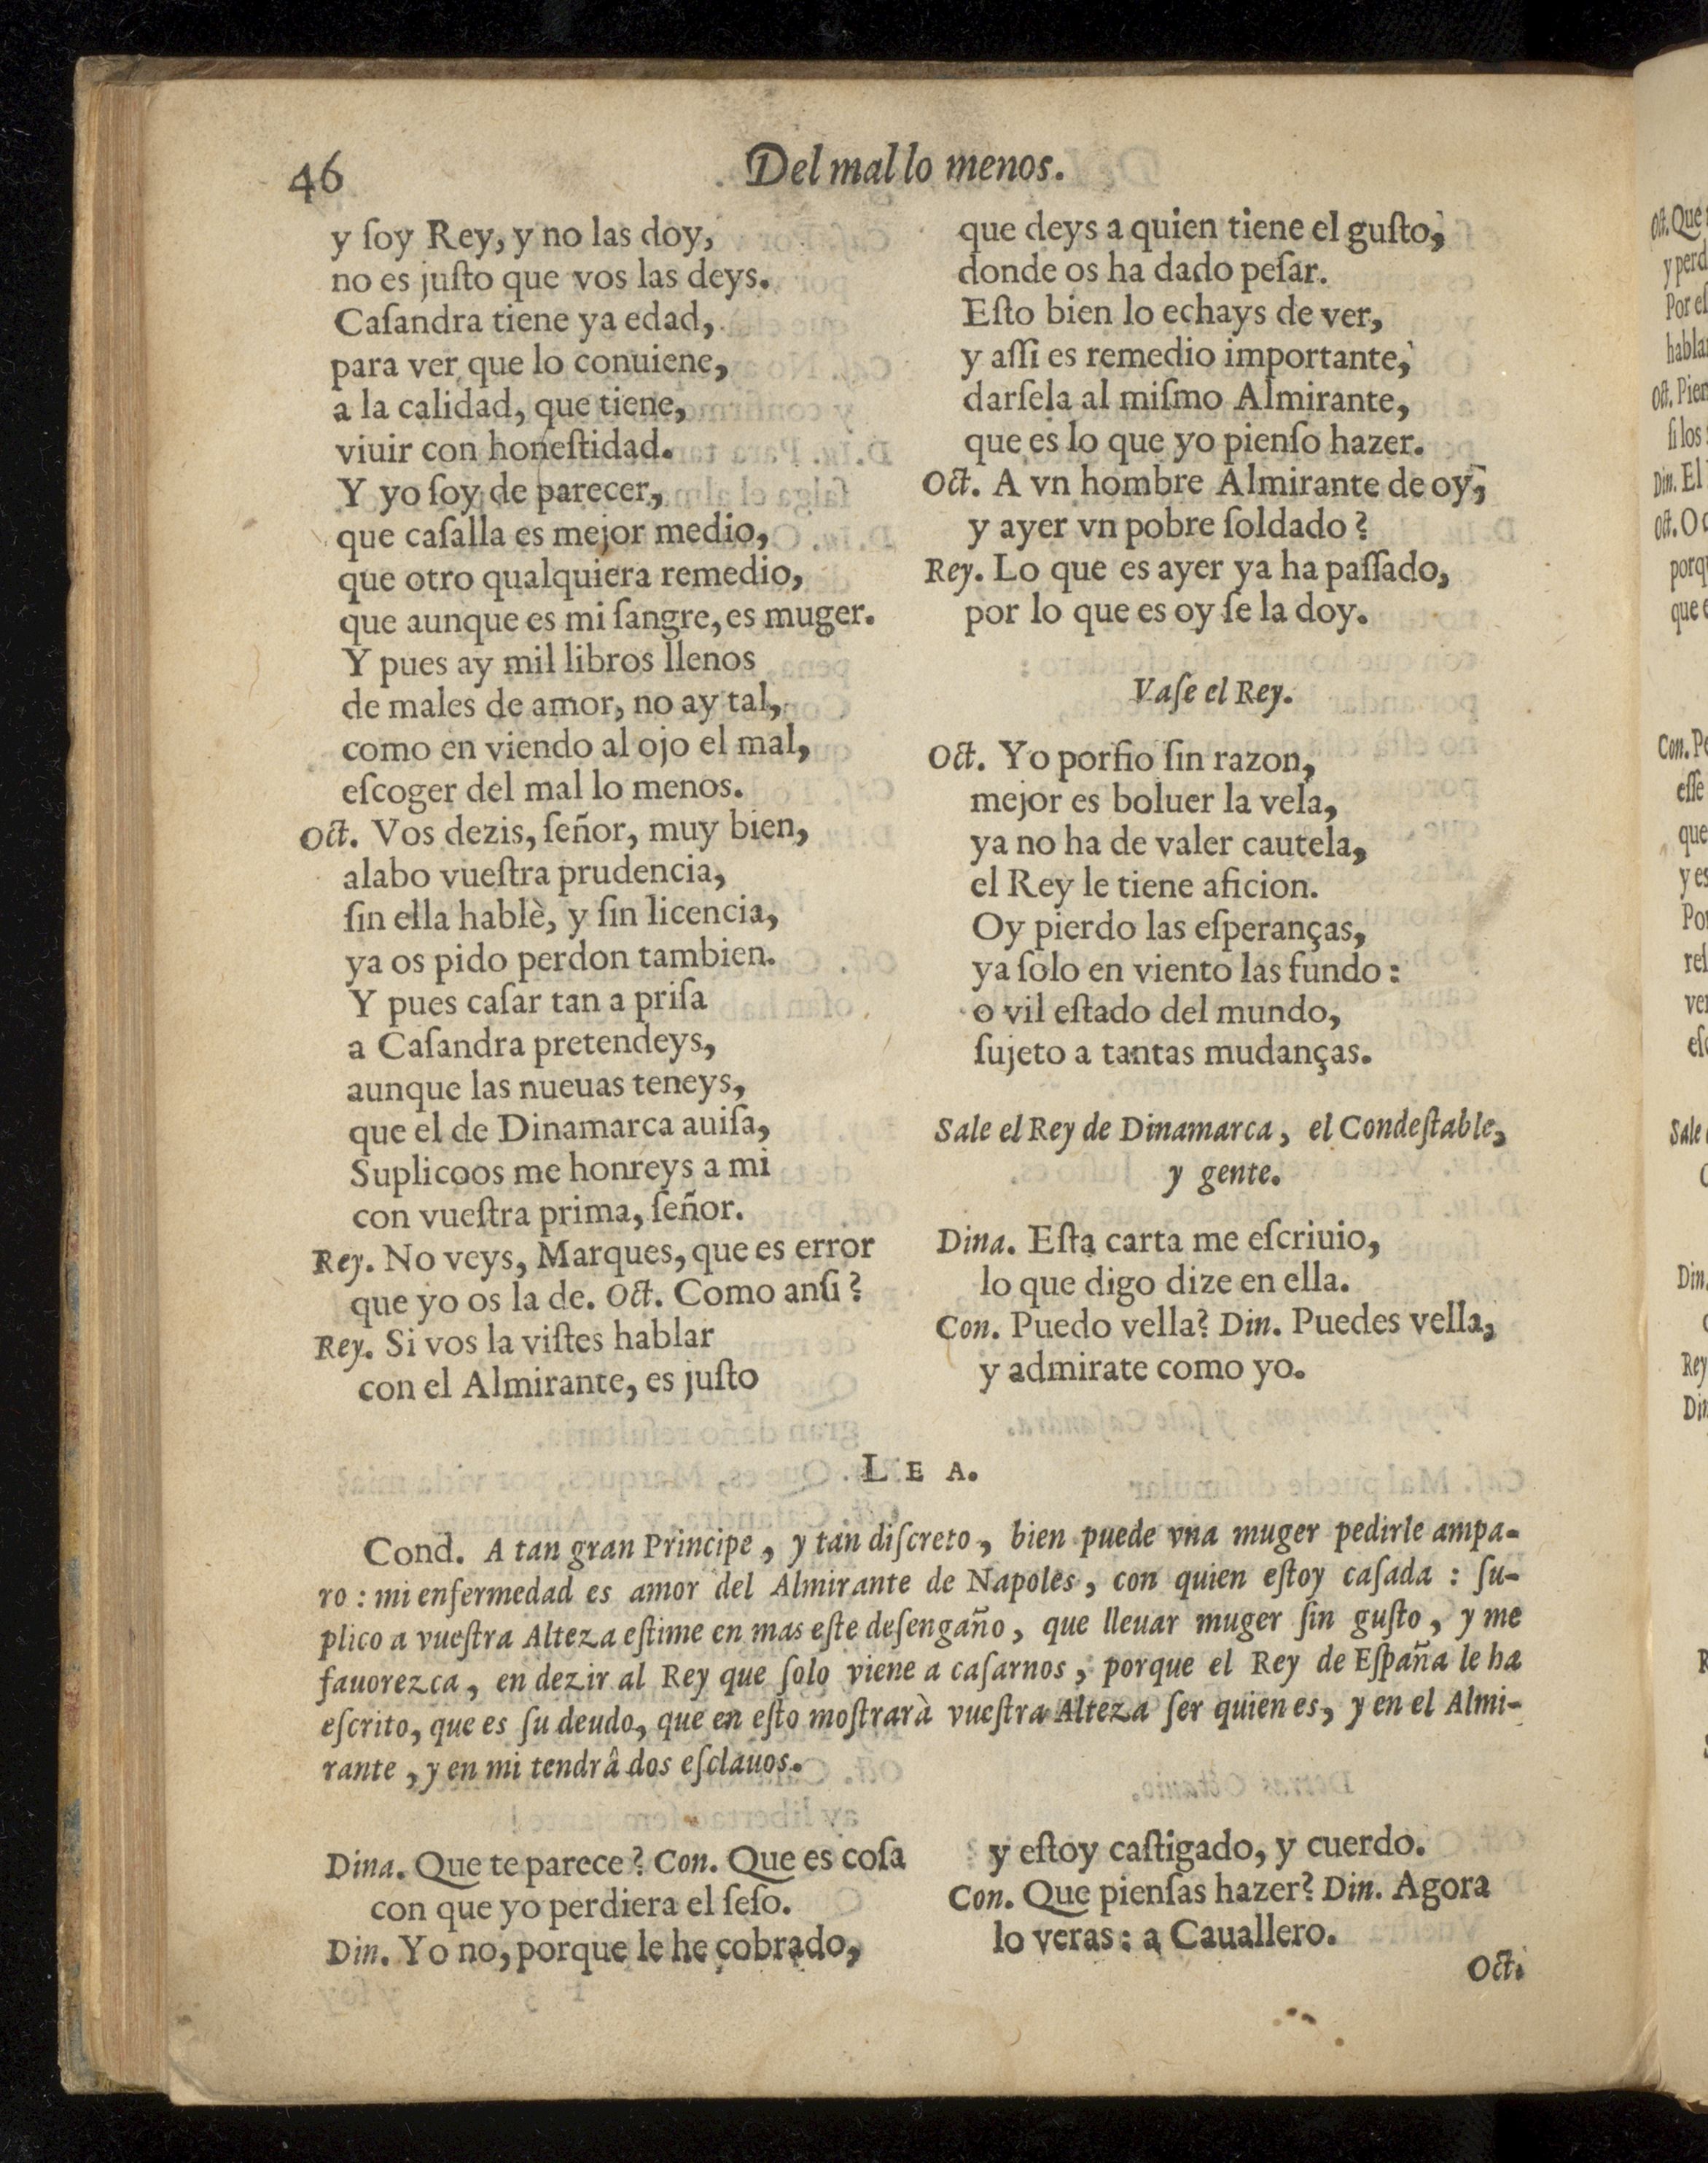 46
Del mal lo menos.
y ſoy Rey, y no las doy,
no es juſto que vos las deys.
Caſandra tiene ya edad,
para ver que lo conuiene,
a la calidad, que tiene,
viuir con honeſtidad.
Y yo ſoy de parecer,
que caſalla es mejor medio,
que otro qualquiera remedio,
que aunque es mi ſangre, es muger.
Y pues ay mil libros llenos
de males de amor, no ay tal,
como en viendo al ojo el mal,
eſcoger del mal lo menos.
Oct. Vos dezis, ſeñor, muy bien,
alabo vueſtra prudencia,
ſin ella hablè, y ſin licencia,
ya os pido perdon tambien.
Y pues caſar tan a priſa
a Caſandra pretendeys,
aunque las nueuas teneys,
que el de Dinamarca auiſa,
Suplicoos me honreys a mi
con vueſtra prima, ſeñor.
Rey. No veys, Marques, que es error
que yo os la de. Oct. Como anſi?
Rey. Si vos la viſtes hablar
con el Almirante, es juſto
que deys a quien tiene el guſto,
donde os ha dado peſar.
Eſto bien lo echays de ver,
y aſſi es remedio importante,
darſela al miſmo Almirante,
que es lo que yo pienſo hazer.
Oct. A vn hombre Almirante de oy,
y ayer vn pobre ſoldado?
Rey. Lo que es ayer ya ha paſſado,
por lo que es oy ſe la doy.
Vaſe el Rey.
Oct. Yo porfio ſin razon,
mejor es boluer la vela,
ya no ha de valer cautela,
el Rey le tiene aficion.
Oy pierdo las eſperanças,
ya ſolo en viento las fundo:
o vil eſtado del mundo,
ſujeto a tantas mudanças.
Sale el Rey de Dinamarca, el Condeſtable,
y gente.
Dina. Eſta carta me eſcriuio,
lo que digo dize en ella.
Con. Puedo vella? Din. Puedes vella,
y admirate como yo.
LEA.
Cond. A tan gran Principe, y tan diſcreto, bien puede vna muger pedirle ampa-
ro: mi enfermedad es amor del Almirante de Napoles, con quien eſtoy caſada: ſu-
plico a vueſtra Alteza eſtime en mas eſte deſengaño, que lleuar muger ſin guſto, y me
fauorezca, en dezir al Rey que ſolo viene a caſarnos, porque el Rey de Eſpaña le ha
eſcrito, que es ſu deudo, que en eſto moſtrarà vueſtra Alteza ſer quien es, y en el Almi-
rante, y en mi tendrâ dos eſclauos.
Dina. Que te parece? Con. Que es coſa
con que yo perdiera el ſeſo.
Din. Yo no, porque le he cobrado,
y eſtoy caſtigado, y cuerdo.
Con. Que pienſas hazer? Din. Agora
lo veras: a Cauallero.
Oct.